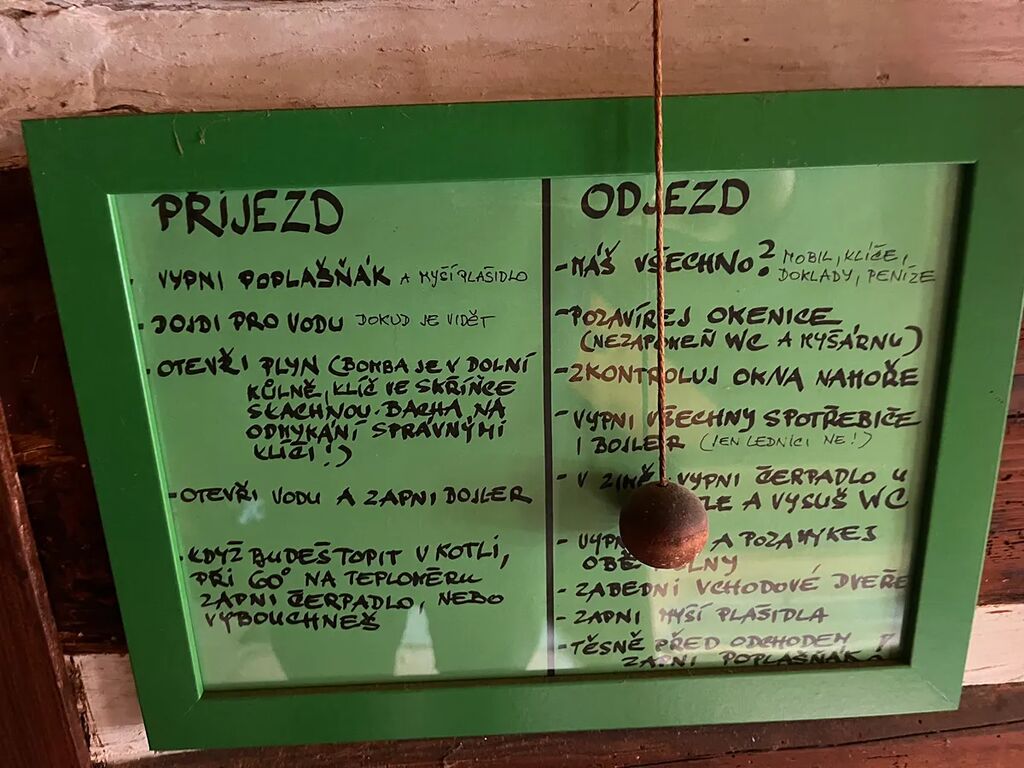 PŘÍJEZD
- VYPNI POPLAŠŇÁK A MYŠÍ PLAŠIDLO
- DOJDI PRO VODU DOKUD JE VIDĚT
- OTEVŘI PLYN (BOMBA JE V DOLNÍ
KŮLNĚ, KLÍČ VE SKŘÍŇCE
S KACHNOU. BACHA NA
ODMYKÁNÍ SPRÁVNÝMI
KLÍČI!)
- OTEVŘI VODU A ZAPNI BOJLER
- KDYŽ BUDEŠ TOPIT V KOTLI,
PŘI 60° NA TEPLOMĚRU
ZAPNI ČERPADLO, NEBO
VYBOUCHNEŠ
ODJEZD
- MÁŠ VŠECHNO? MOBIL, KLÍČE,
DOKLADY, PENÍZE
- POZAVÍREJ OKENICE
(NEZAPOMEŇ WC A MYŠÁRNU)
- ZKONTROLUJ OKNA NAHOŘE
- VYPNI VŠECHNY SPOTŘEBIČE
I BOJLER (JEN LEDNICI NE!)
- V ZIMĚ VYPNI ČERPADLO U
A VYSUŠ WC
- A POZAMYKEJ
- ZABEDNI VCHODOVÉ DVEŘE
- ZAPNI MYŠÍ PLAŠIDLA
- TĚSNĚ PŘED ODCHODEM
ZAPNI POPLAŠŇÁK!